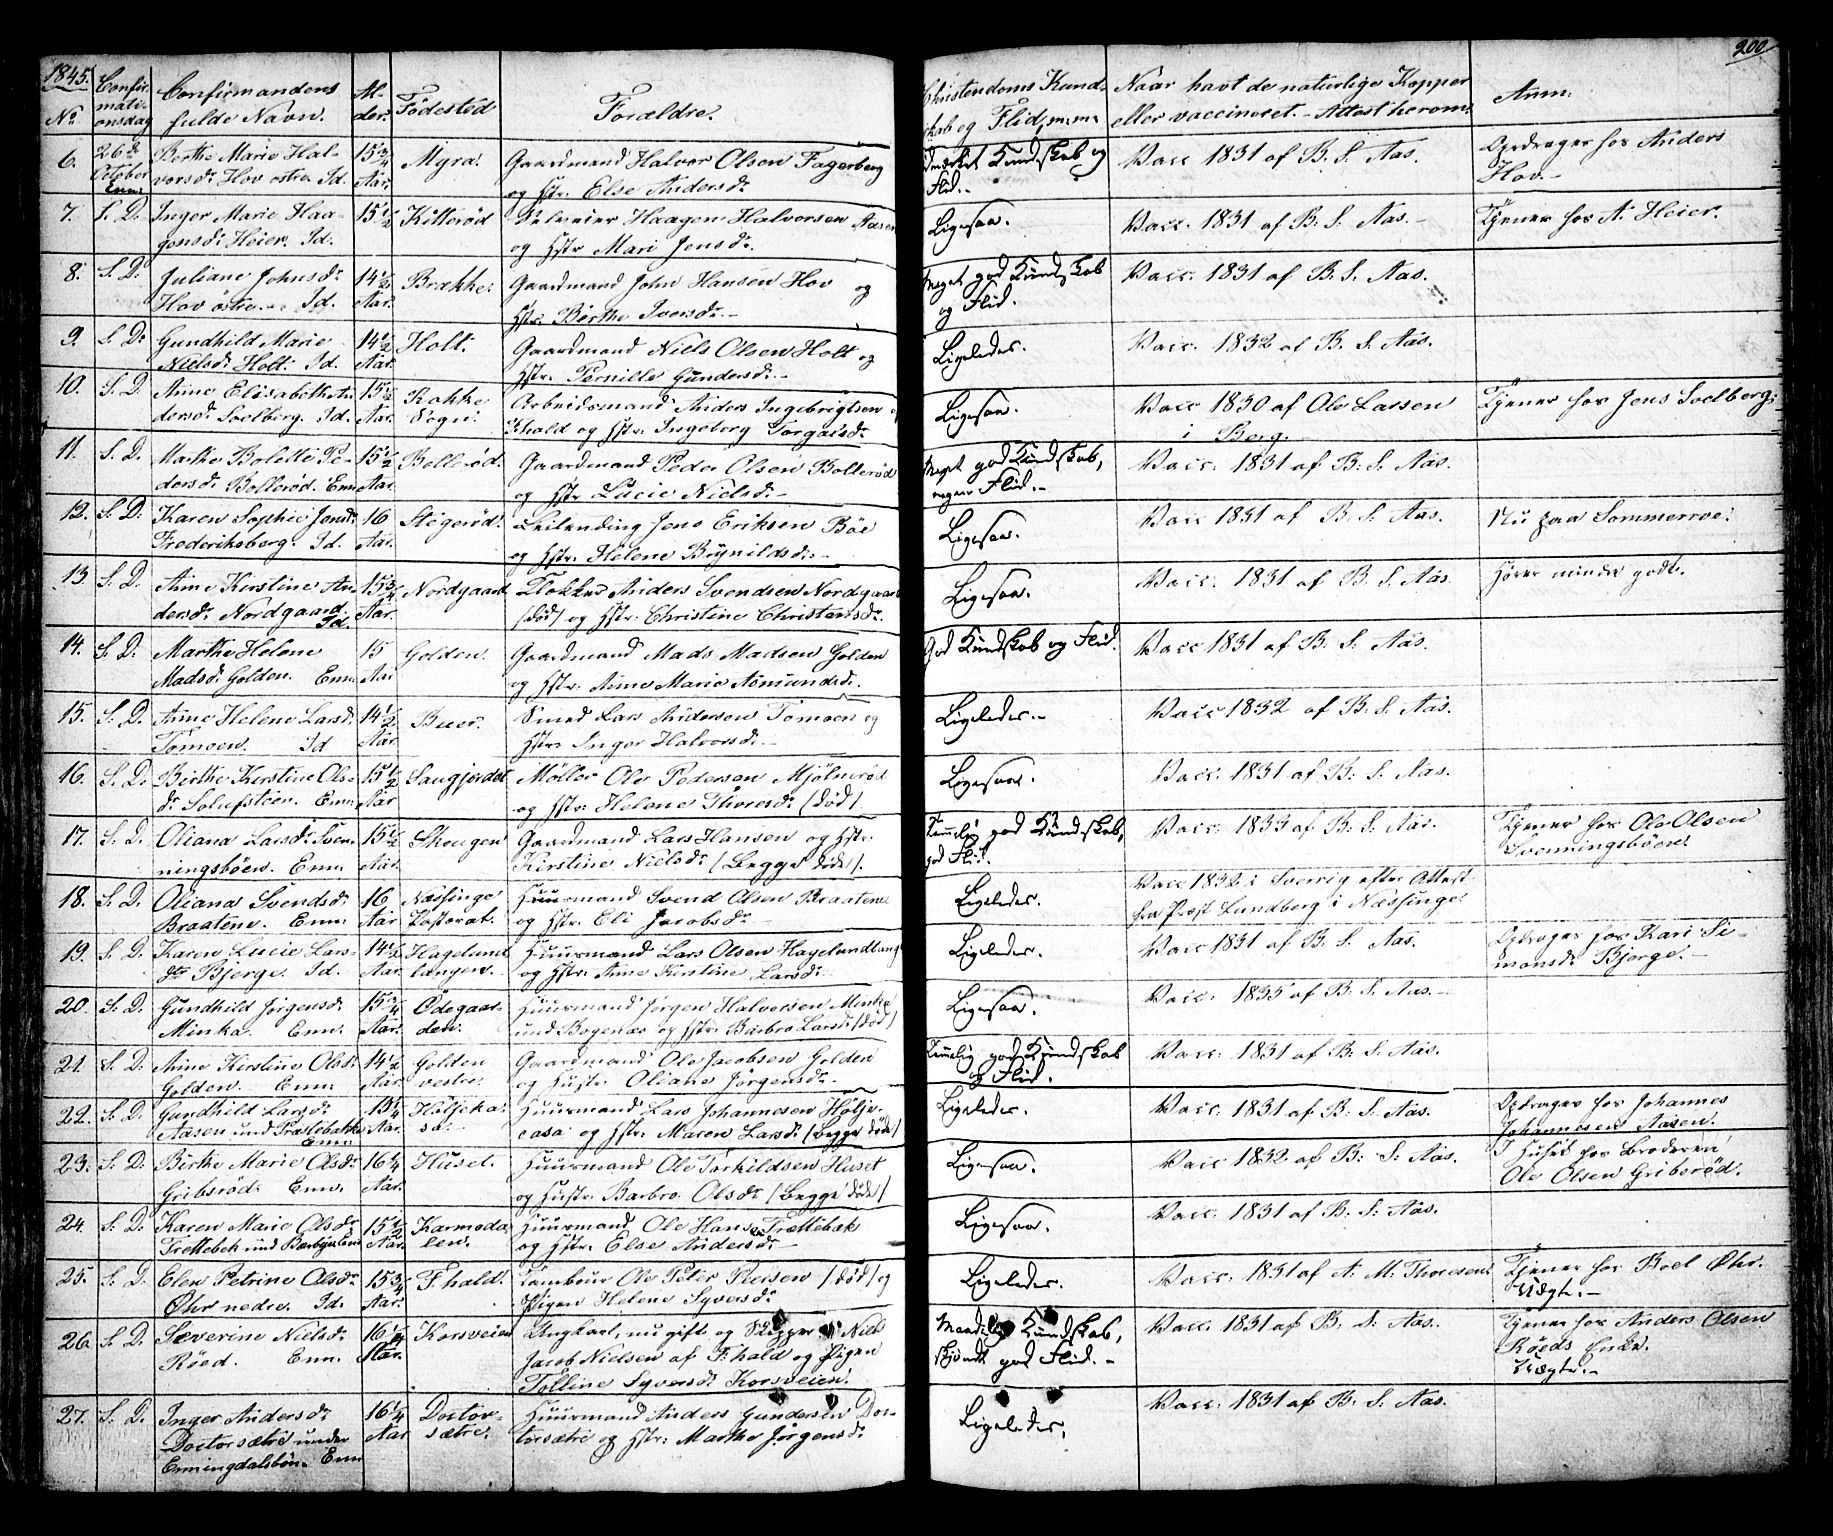 1845.
200
No
Confir-
mati-
onsdag
Confirmandens
fulde Navn.
Al-
der.
Fødested
Forældre.
Christendoms Kund-
skab og Flid, m.m.
Naar havt de naturlige Kopper
eller vaccineret. - Attest herom.
Anm:
6. 26de October Enn: Berthe Marie Hal-
vorsdr Hov østre Id. 15 3/4 Aar. Myra. Gaardmand Halvor Olsen Fagerberg
og Hstr. Else Andersdr Udmærket Kundskab og
Flid. - Vacc 1831 af B. S. Aas. Opdrages hos Anders
Hov. -
7. S. D. Inger Marie Haa-
gensdr Heier. Id. 15 1/2 Kitterød Selveier Haagen Halvorsen Aasen
og Hstr Mari Jensdr. Ligesaa. Vacc. 1831 af B. S. Aas. - Tjener hos A. Heier.
8. S. D. Juliane Johnsdr
Hov østre. - Id. 14 1/2 Aar. Brække. Gaardmand John Hansen Hov og
Hstr. Berthe Iversdr. - Meget god Kundskab
og Flid. Vacc. 1831 af B. S. Aas.
9. S. D. Gundhild Marie
Nielsdr Holt. Id. 14 1/2 Aar. Holt. Gaardmand Niels Olsen Holt og
Hstr. Pernille Gundersdr. - Ligeledes. Vacc. 1832 af B. S. Aas.
10. S. D. Anne Elisabeth An-
dersdr Soelberg. Id. 15 1/2 Aar. Rokke
Sogn. Arbeidsmand Anders Ingebrigtsen
Fhald og Hstr. Ingeborg Torgalsdr Ligesaa. Vacc 1830 af Ole Lassen
i Berg. Tjener hos Jens Soelberg.
11. S. D. Marthe Bolette Pe-
dersdr Bollerød. Enn 15 1/2 Aar. Bollerød. Gaardmand Peder Olsen Bollerød
og Hstr Lucie Nielsdr. - Meget god Kundskab,
megen Flid. - Vacc. 1831 af B. S. Aas.
12. S. D. Karen Sophie Jensdr
Frederiksberg. Id. 16 Aar. Stegerød. Leilending Jens Eriksen Bøe
og Hstr. Helene Brynildsdr. - Ligesaa. Vacc 1831 af B. S. Aas. Nu paa Sommerroe.
13. S. D. Anne Kerstine An-
dersdr Nordgaard.
Id. 15 3/4 Aar. Nordgaard Klokker Anders Svendsen Nordgaard
/død/ og Hstr. Christine Christensdr. Ligesaa. Vacc. 1831 af B. S. Aas. Hører mindre godt.
14. S. D. Marthe Helene
Madsdr Golden. Enn. 15 Aar Golden. Gaardmand Mads Madsen Golden
og Hstr. Anne Marie Asmundsdr. God Kundskab og Flid. Vacc 1831 af B. S. Aas.
15. S. D. Anne Helene Larsdr
Tomoen. Id 14 1/2 Aar. Buer. Smed Lars Andersen Tomoen og
Hstr. Inger Halvorsdr. - Ligeledes. - Vacc 1832 af B. S. Aas.
16. S. D. Birthe Kerstine Ols-
dr Solufsteen. Enn. 15 1/2 Aar Saugjordet Møller Ole Pedersen Mjølnerød
og Hstr. Helene Thoresdr /død/. Ligesaa. Vacc. 1831 af B. S. Aas.
17. S. D. Oliana Larsdr Sven-
ningsbøen. Enn. 15 1/2 Aar. Skougen Gaardmand Lars Hansen og Hstr.
Kirstine Nielsdr /Begge døde/. Temmelig god Kundskab,
god Flid. Vacc. 1833 af B. S. Aas. Tjener hos Ole Olsen
Svenningsbøen.
18. S. D. Oliana Svendsdr
Braatene. Enn. 16 Aar Næssinge
Pastorat. Huusmand Svend Olsen Braatene
og Hstr. Eli Jacobsdr. - Ligeledes. Vacc 1832 i Sverrig efter Attest
fra Præst Lundberg i Næssinge.
19. S. D. Karen Lucie Lars-
dtr Bjerge. Id. 14 1/2 Aar. Hagelund
tangen. Huusmand Lars Olsen Hagelundtang
og Hstr. Anne Kirstine Larsdr. - Ligeledes. Vacc 1831 af B. S. Aas. Opdrages hos Kari Si-
monsdr Bjerge. -
20. S. D. Gundhild Jørgensdr
Minka. Enn. 15 3/4 Aar. Ødegaar-
den. Huusmand Jørgen Halvorsen Minka
und Bogenæs og Hstr. Barbro Larsdr /død/ Ligesaa. Vacc. 1835 af B. S. Aas. -
21. S. D. Anne Kirstine Olsdr
Golden. Enn. 14 1/2 Aar. Golden
vestre. Gaardmand Ole Jacobsen Golden
og Hustr. Oliane Jørgensdr. Temmelig god Kundskab
og Flid. Vacc. 1831 af B. S. Aas.
22. S. D. Gundhild Larsdr
Aasen und Præstebakke
Enn. 15 1/4 Aar. Høljeka-
sa. - Huusmand Lars Johannesen Hølje-
casa og Hstr. Maren Larsdr /Begge døde/ Ligeledes. Vacc. 1831 af B. S. Aas. Opdrages hos Johannes
Johannesen Aasen.
23. S. D. Birthe Marie Olsdr
Gribsrød. Enn. 16 1/4 Aar. Huset. Huusmand Ole Torkildsen Huset
og Hustr. Barbro Olsdr /Begge døde/ Ligesaa. Vacc 1832 af B. S. Aas. I Huset hos Broderen
Ole Olsen Gribsrød.
24. S. D. Karen Marie Olsdr
Trettebek und Berby Enn 15 1/2 Aar. Karmoda-
len. Huusmand Ole Hansen Trettebek
og Hstr. Else Andersdr - Ligesaa. Vacc. 1831 af B. S. Aas.
25. S. D. Elen Petrine Olsdr
Øhr nedre. Id. 15 3/4 Aar. Fhald. Tambour Ole Peter Olsen /død/ og
Pigen Helene Syversdr Ligeledes. Vacc. 1831 af A. M. Thoresen. Tjener hos Boel Øhr.
Uægte. -
26. S. D. Severine Nielsdr
Røed. Enn. 16 1/4 Aar. Korsveien Ungkarl, nu gift og Skipper Niels
Jacob Nielsen af Fhald og Pigen
Tolline Syversdr Korsveien. Maadelig Kundskab,
skjøndt god Flid. - Vacc. 1831 af B. S. Aas. Tjener hos Anders Olsen
Røeds Enke.
Uægte. -
27. S. D. Inger Andersdr
Doctorsætre under
Enningdalsbøn. Enn 16 1/4 Aar Doctor-
sætre. Huusmand Anders Gundersen Doc-
torsætre og Hstr. Marthe Jørgensdr Ligeledes. Vacc. 1831 af B. S. Aas.